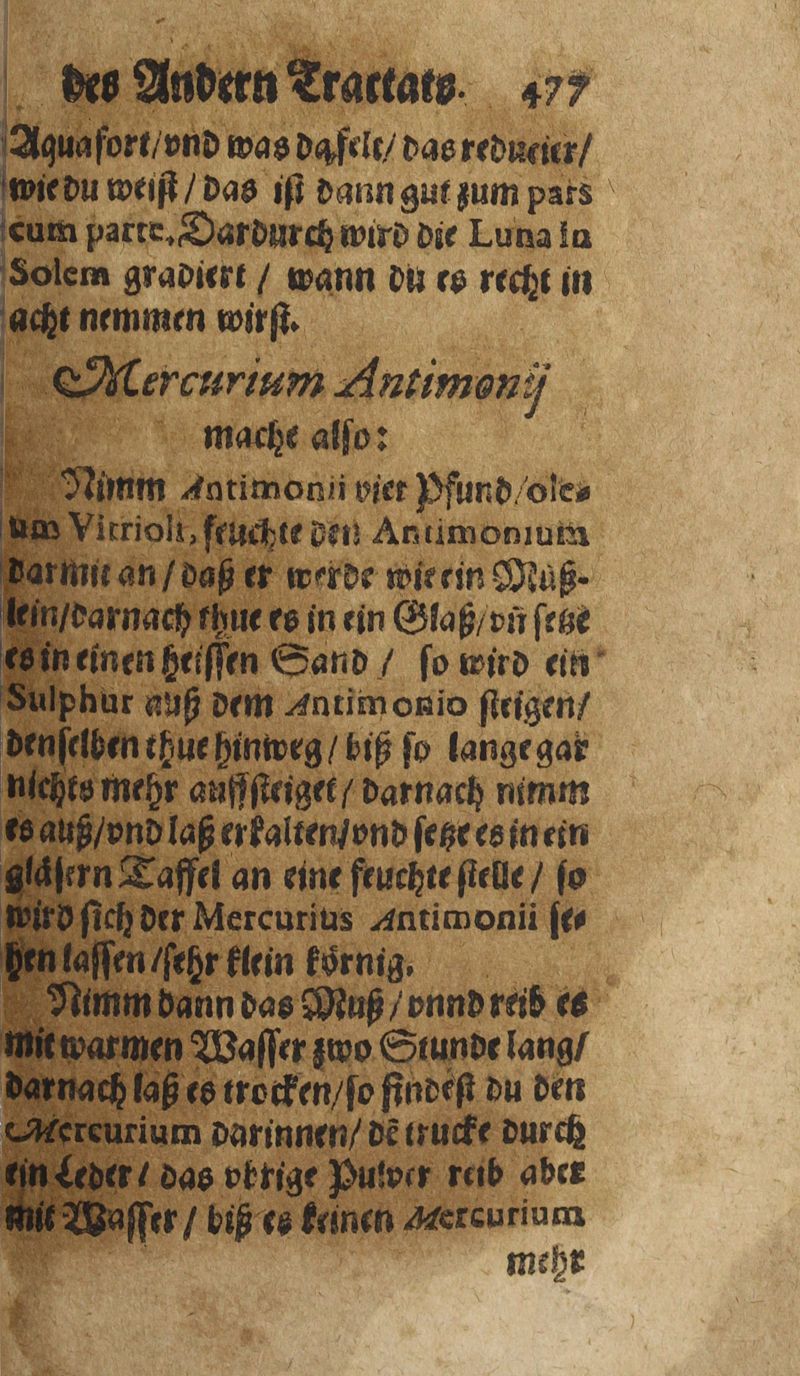 des Andern Tractats. 477
Aquafort/vnd was dafelt/das reducier/
wie du weist / das ist dann gut zum pars
cum parte, Dardurch wird die Luna in
Solem gradiert / wann du es recht in
acht nemmen wirst.
Mercurium Antimonij
mache also:
Nimm Antimonii vier Pfund/ole-
um Vitrioli, feuchte den Antimonium
darmit an / daß er werde wie ein Müß-
lein/darnach thue es in ein Glaß/vñ setze
es in einen heissen Sand / so wird ein
Sulphur auß dem Antimonio steigen/
denselben thue hinweg / biß so lange gar
nichts mehr auffsteiget / darnach nimm
es auß/vnd laß erkalten/vnd setze es in ein
gläsern Taffel an eine feuchte stelle / so
wird sich der Mercurius Antimonii se-
hen lassen /sehr klein körnig.
Nimm dann das Muß / vnnd reib es
mit warmen Wasser zwo Stunde lang/
darnach laß es trocken/so findest du den
Mercurium darinnen/ dē trucke durch
ein Leder / das vbrige Pulver reib aber
mit Wasser / biß es keinen Mercurium
mehr